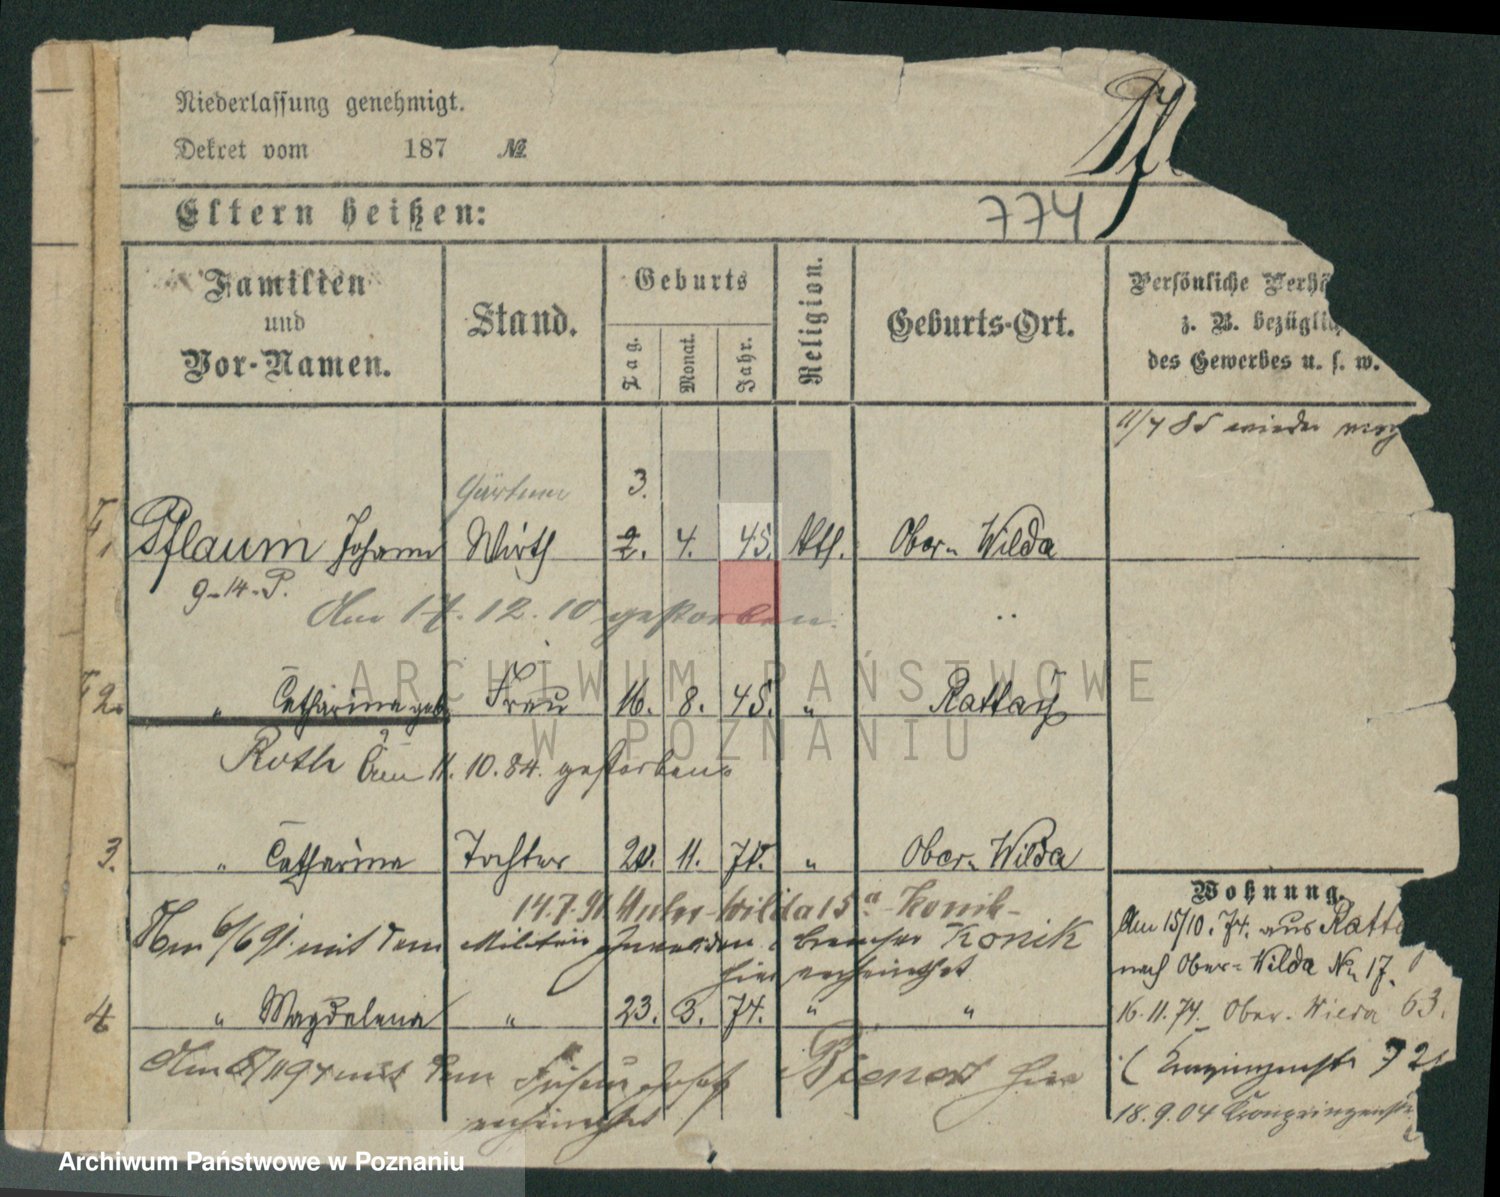 Niederlassung genehmigt.
Dekret vom 187 №
Pfl
Eltern heißen:
774
Familien und Vor-Namen.
Stand.
Geburts
Tag.
Monat.
Jahr.
Religion.
Geburts-Ort.
Persönliche Verhä
z. B. bezüglich
des Gewerbes u. s. w.
11/7 85 wieder
Gärtner 3.
1 Pflaum Johann Wirth 2. 4. 45. kth. Ober-Wilda
9-14-P.
Am 17.12.10 gestorben.
2. " Catharina geb. Frau 16. 8. 45. " Rattay
Roth Am 11.10.84. gestorben
3. " Catharina Tochter 20. 11. 71. " Ober-Wilda
14.7.91 Unter-Wilda 15a Konik-
Am 6/6 91 mit dem Militär Konik
hier verheirathet
4 " Magdalena " 23. 3. 74. " "
Am mit dem Josef Bienert hier
verheirathet
Wohnung.
Am 15/10. 74. aus Ratta
nach Ober-Wilda No 17.
16.11.74. Ober-Wilda 63.
( Kronprinzenstr 72
18.9.04 Kronprinzenstr
ARCHIWUM PAŃSTWOWE
W POZNANIU
Archiwum Państwowe w Poznaniu